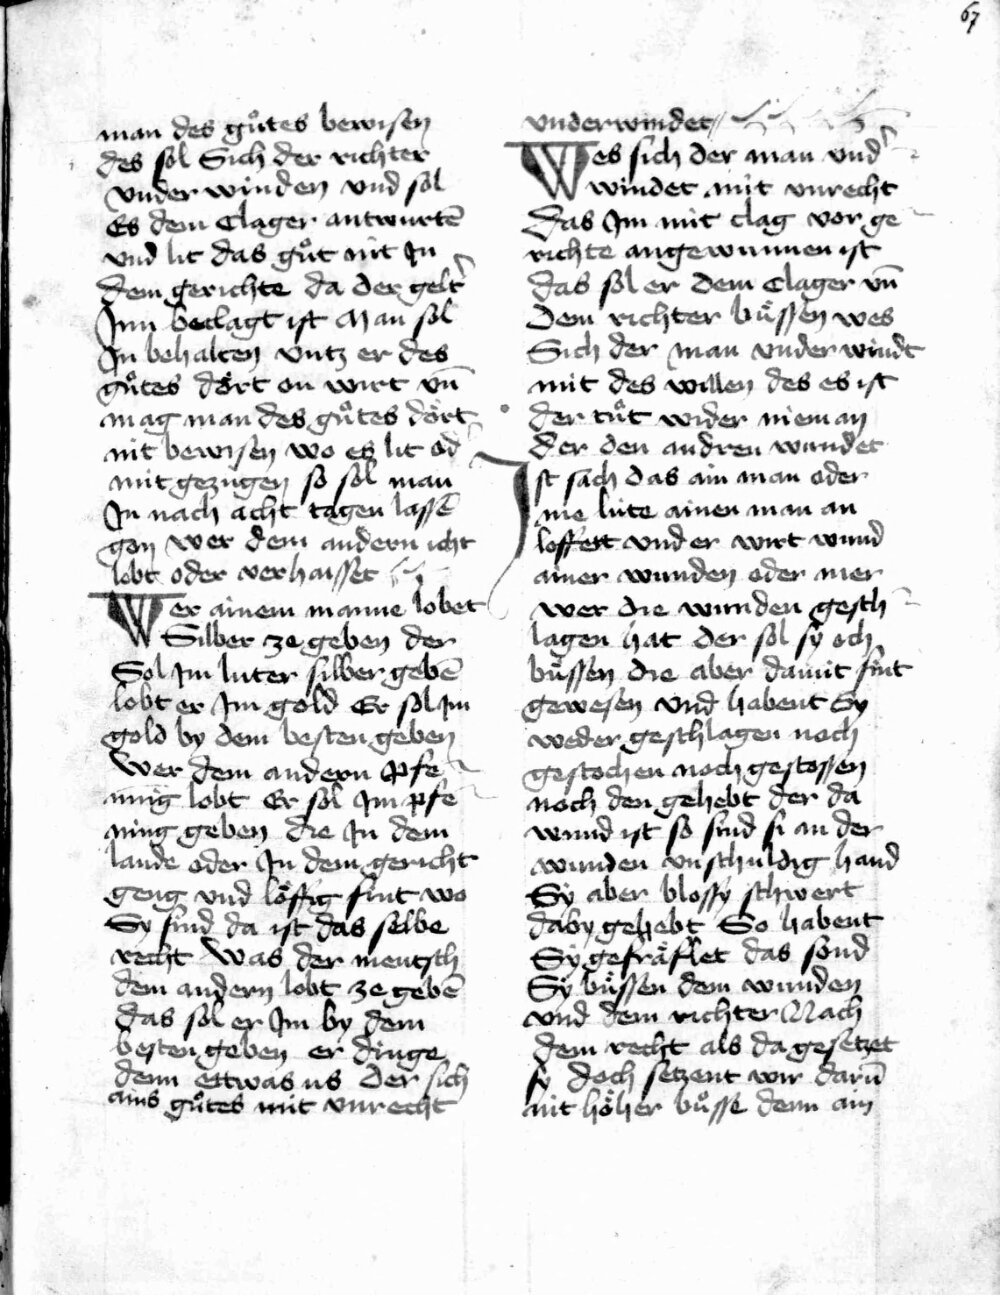 67
man des gůtes bewisen
des sol Sich der richter
vnder winden vnd sol
Es dem Clager antwurtē
vnd lit das gůt nit In
dem gerichte da der gelt'
Inn beclagt ist Man sol
In behalten vntz er des
gůtes dört on wirt vn̄
mag man des gůtes dört
nit bewisen wo es lit od'
mit gezugen so sol man
In nach acht tagen lassē
gen wer dem andern icht
lobt oder verhaisset
Wer ainem manne lobet
Silber ze geben der
Sol Im luter silber gebē
lobt er Im gold Er sol Im
gold by dem besten geben
Wer dem andern Pfe
nnig lobt Er sol Im pfe
nning geben die In dem
lande oder In dem gericht
geng vnd löffig sint wo
Sy sind da ist das selbe
recht Was der mentsch
dem andern lobt ze gebē
das sol er Im by dem
besten geben er dinge
denn ettwas us Der sich
ains gůtes mit vnrecht
vnderwindet
Wes sich der man vnd'
windet mit vnrecht
Das Im mit clag vor ge
richte angewunnen ist
das sol er dem Clager vn̄
Dem richter bůssen wes
Sich der man vnder windt
mit des willen des es ist
der tůt wider nieman
der den andren wundet
Ist sach das ain man oder
me lute ainen man an
loffent vnd er wirt wund
ainer wunden oder mer
wer die wunden gesch
lagen hat der sol sy och
bůssen die aber damit sint
gewesen vnd habent Sy
weder geschlagen noch
gestochen noch gestossen
noch den gehebt der da
wund ist so sind si an der
wunden vnschuldig hand
Sy aber blossy schwert
daby gehebt So habent
Sy gefräflet das sond
Sy bůssen dem wunden
vnd dem richter Nach
dem recht als da gesetzet
sy doch setzent wir darū
nit höher bůsse denn ain